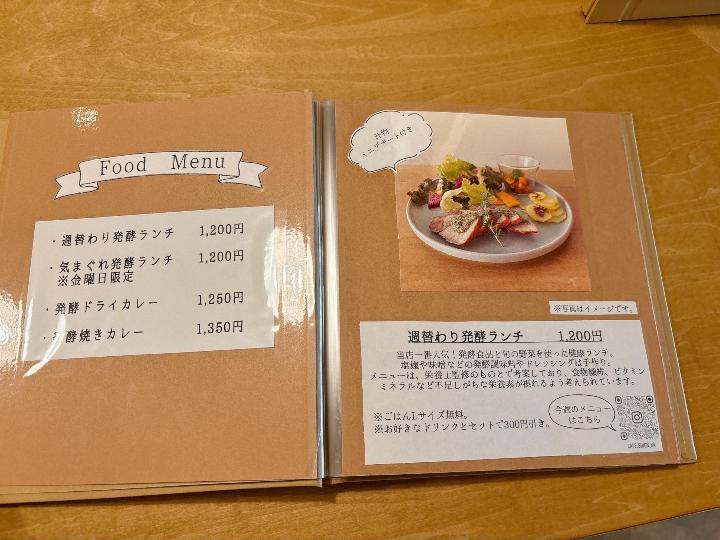 Food Menu
・週替わり発酵ランチ 1,200円
・気まぐれ発酵ランチ 1,200円
※金曜日限定
・発酵ドライカレー 1,250円
酵焼きカレー 1,350円
汁物
ミニデザート付き
※写真はイメージです。
週替わり発酵ランチ 1,200円
当店一番人気!発酵食品と旬の野菜を使った健康ランチ。
塩麹や味噌などの発酵調味料やドレッシングは手作り。
メニューは、栄養士監修のもとで考案しており、食物繊維、ビタミン
ミネラルなど不足しがちな栄養素が摂れるよう考えられています。
※ごはんLサイズ無料。
※お好きなドリンクとセットで300円引き。
今週のメニュー
はこちら